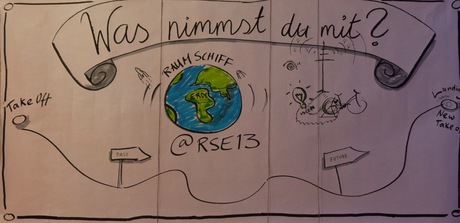 Was nimmst du mit?
RAUMSCHIFF
ERDE
@RSE13
Take Off
PAST
FUTURE
Landing
New
Take off